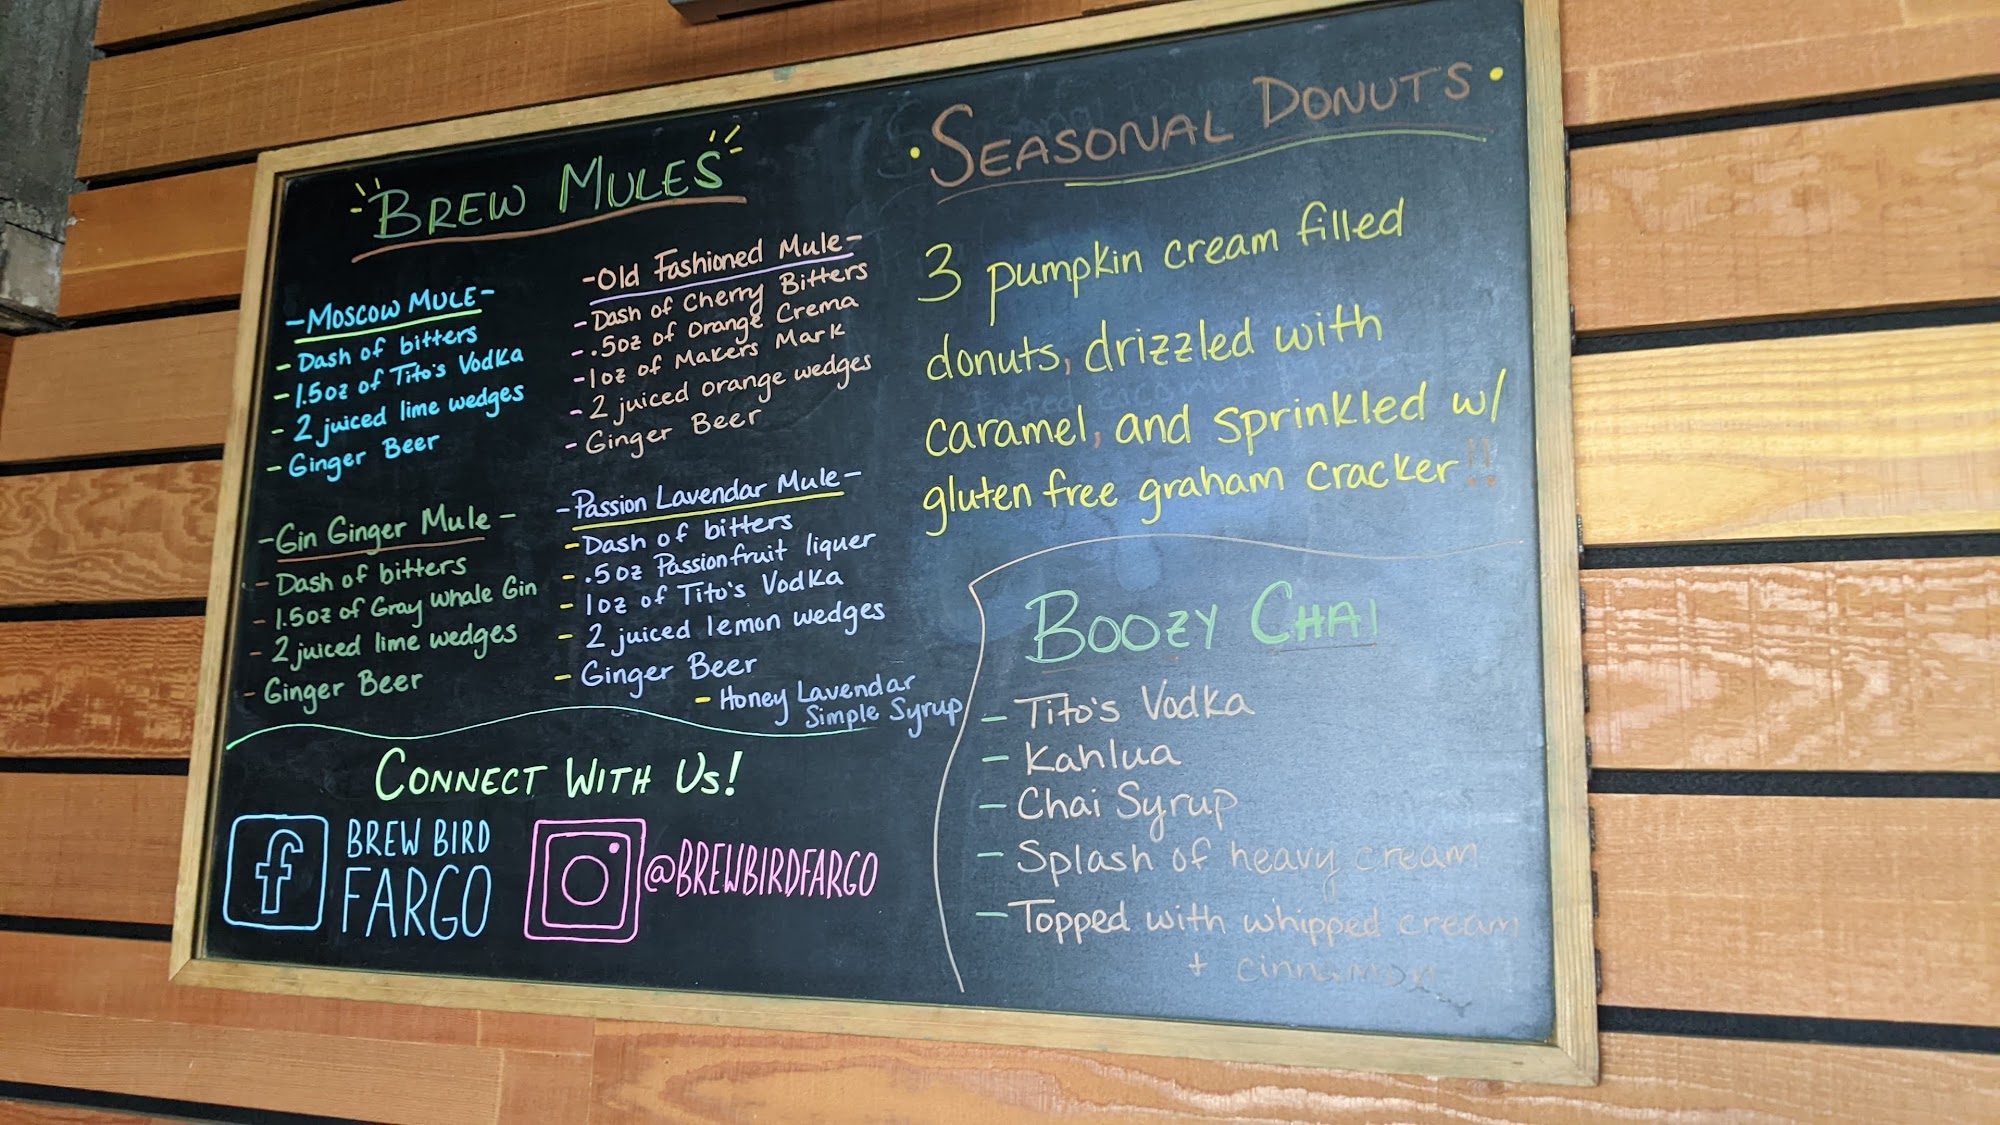 BREW MULES
-MOSCOW MULE-
- Dash of bitters
- 1.5oz of Tito's Vodka
- 2 juiced lime wedges
- Ginger Beer
-Old Fashioned Mule-
- Dash of Cherry Bitters
- .5oz of Orange Crema
- 1oz of Makers Mark
- 2 juiced orange wedges
- Ginger Beer
-Gin Ginger Mule-
- Dash of bitters
- 1.5oz of Gray Whale Gin
- 2 juiced lime wedges
- Ginger Beer
-Passion Lavendar Mule-
- Dash of bitters
- .5oz Passionfruit liquer
- 1oz of Tito's Vodka
- 2 juiced lemon wedges
- Ginger Beer
- Honey Lavendar
Simple Syrup
CONNECT WITH US!
BREW BIRD
FARGO
@BREWBIRDFARGO
• SEASONAL DONUTS •
3 pumpkin cream filled
donuts, drizzled with
caramel, and sprinkled w/
gluten free graham cracker!!
BOOZY CHAI
- Tito's Vodka
- Kahlua
- Chai Syrup
- Splash of heavy cream
- Topped with whipped cream
+ cinnamon